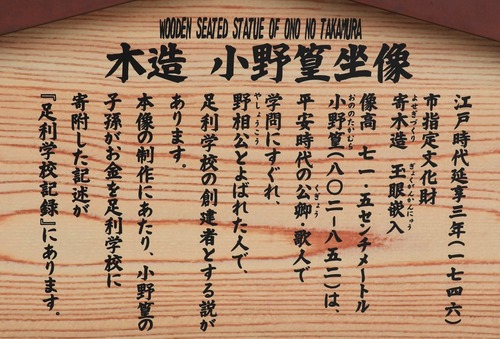 WOODEN SEATED STATUE OF ONO NO TAKAMURA
木造 小野篁坐像
江戸時代延享三年(一七四六)
市指定文化財
寄木造 玉眼嵌入
よせぎづくり ぎょくがんかんにゅう
像高 七一・五センチメートル
小野篁(八〇二-八五二)は、
おののたかむら
平安時代の公卿・歌人で
くぎょう
学問にすぐれ、
野相公とよばれた人で、
やしょうこう
足利学校の創建者とする説が
あります。
本像の制作にあたり、小野篁の
子孫がお金を足利学校に
寄附した記述が
『足利学校記録』にあります。